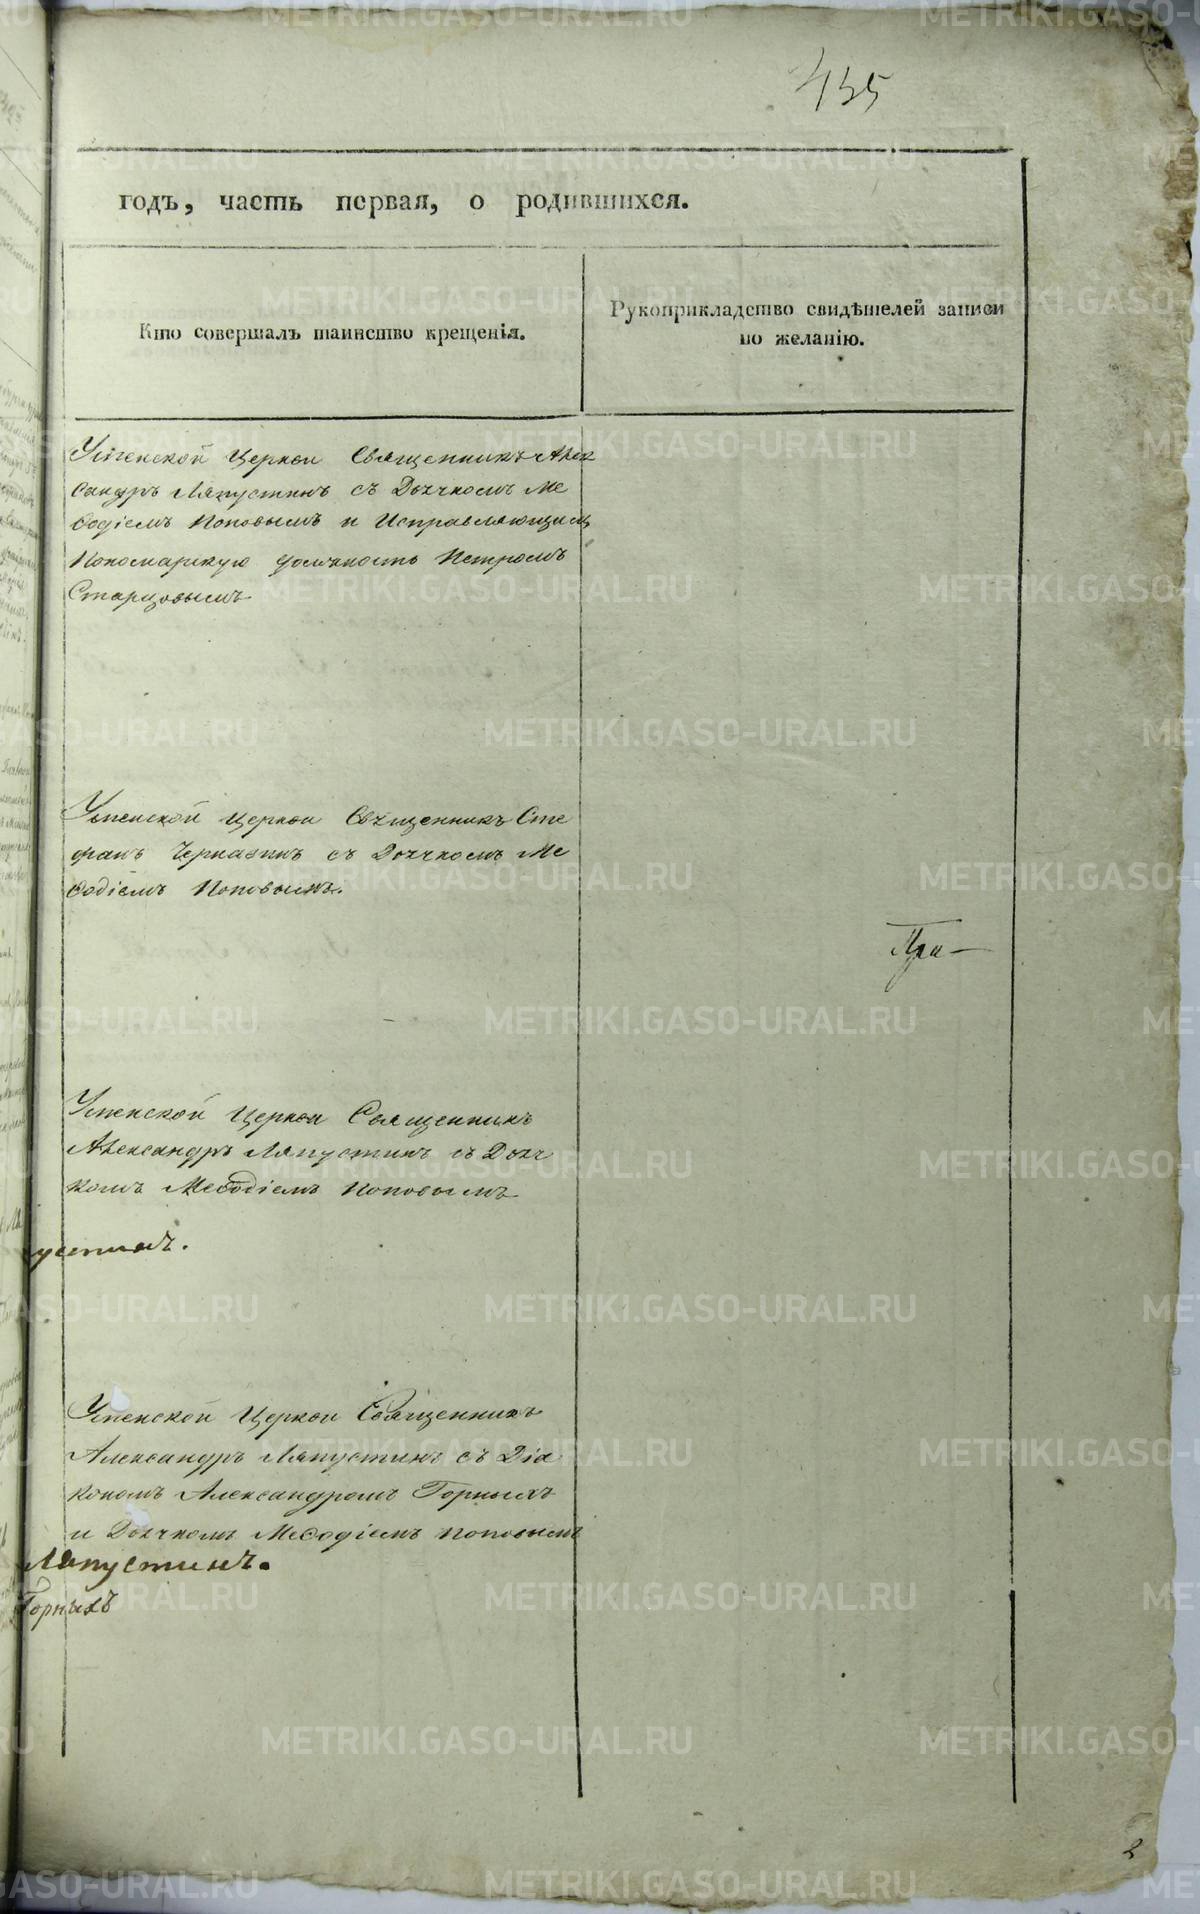 435
годъ, часть первая, о родившихся.
Кто совершалъ таинство крещенія.
Рукоприкладство свидѣтелей записи
по желанію.
Успенской Церкви Священникъ Алек
сандръ Ляпустинъ съ Дьячкомъ Ме
ѳодіемъ Поповымъ и Исправляющимъ
Пономарскую должность Петромъ
Старцовымъ
Успенской Церкви Священникъ Сте
фанъ Чернавинъ съ Дьячкомъ Ме
ѳодіемъ Поповымъ.
Успенской Церкви Священникъ
Александръ Ляпустинъ съ Дьяч
комъ Меѳодіемъ Поповымъ
устинъ.
Успенской Церкви Священникъ
Александръ Ляпустинъ съ Діа
кономъ Александромъ Горныхъ
и Дьячкомъ Меѳодіемъ Поповымъ
Ляпустинъ.
Горныхъ
METRIKI.GASO-URAL.RU